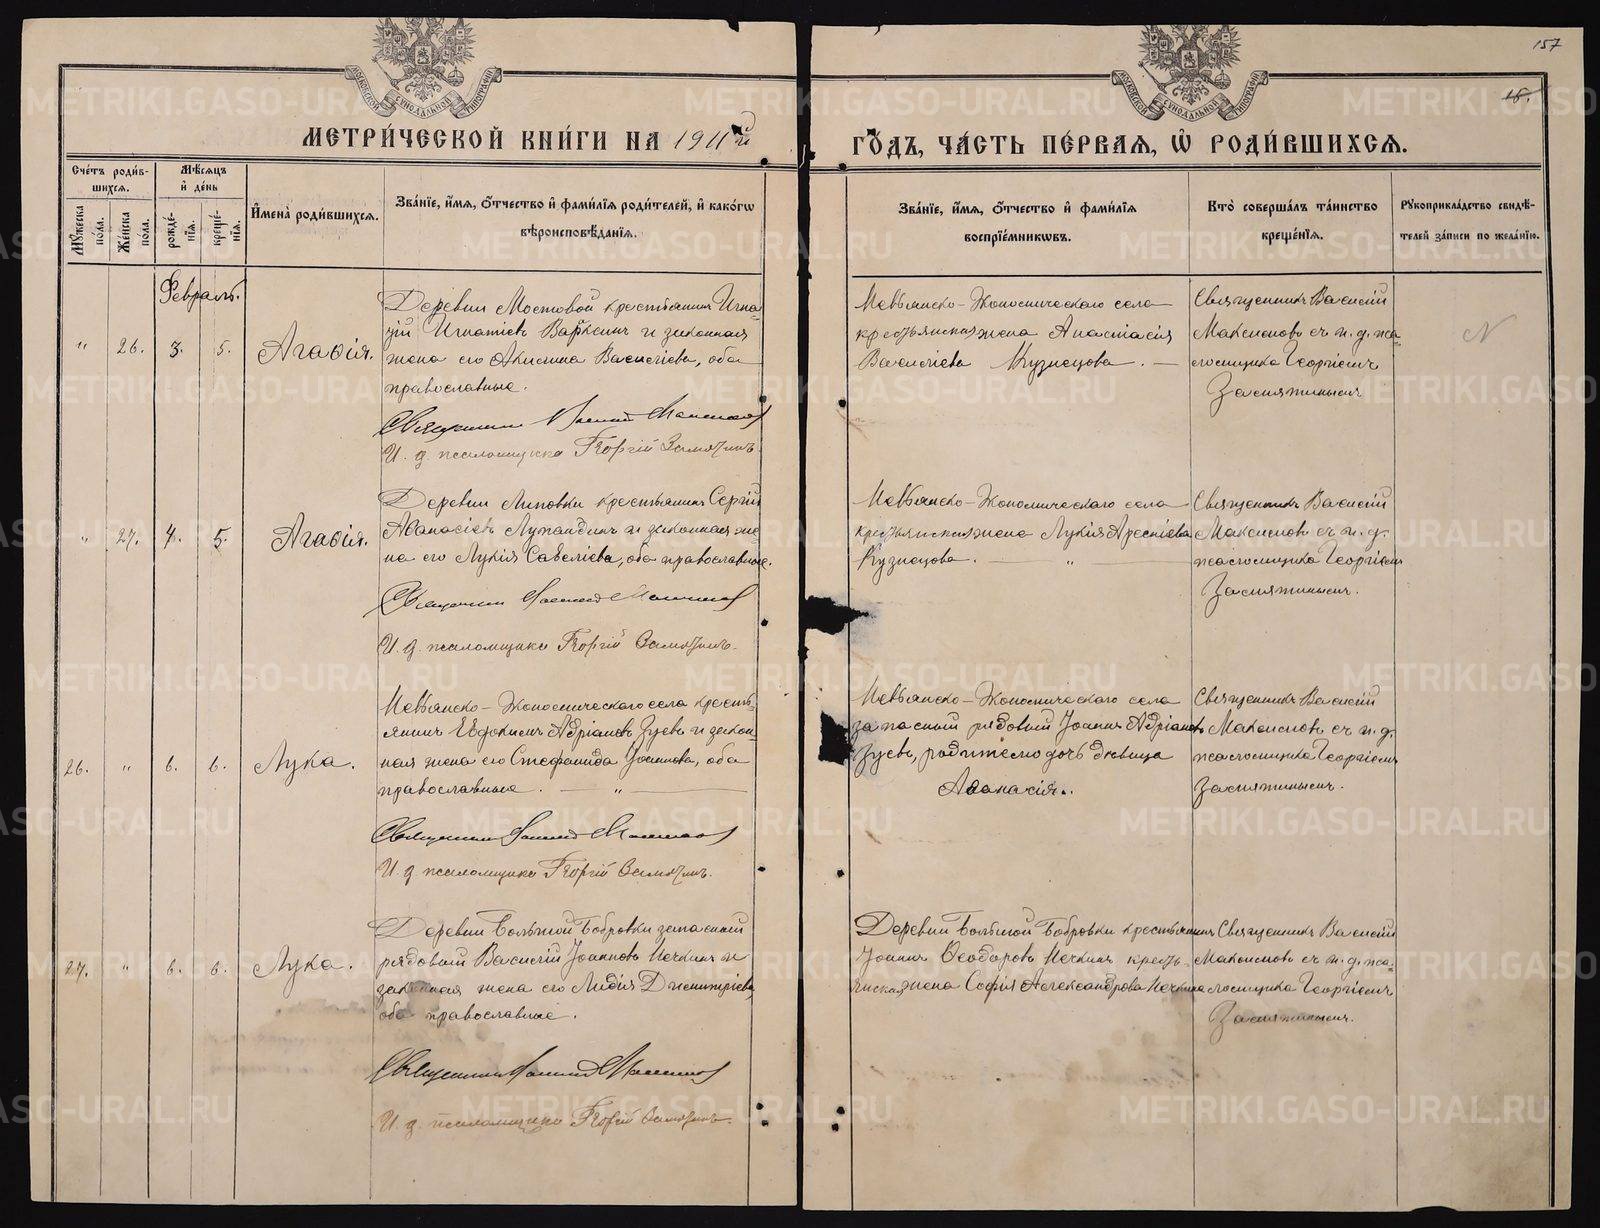 157
18.
МОСКОВСКОЙ СѴНОДАЛЬНОЙ ТИПОГРАФІИ
МОСКОВСКОЙ СѴНОДАЛЬНОЙ ТИПОГРАФІИ
МЕТРИ́ЧЕСКОЙ КНИ́ГИ НА 1911й
ГО́ДЪ, ЧА́СТЬ ПЕ́РВАЯ, Ѡ҆ РОДИ́ВШИХСЯ.
Сче́тъ роди́в-
шихся.
Му́жеска
по́ла.
Же́нска
по́ла.
Мѣ́сяцъ
и҆ де́нь
рожде́-
нїя.
креще́-
нїя.
И҆мена̀ роди́вшихся.
Зва́нїе, и҆́мя, ѻ҆́тчество и҆ фами́лїя роди́телей, и҆ како́гѡ
вѣроисповѣ́данїя.
Зва́нїе, и҆́мя, ѻ҆́тчество и҆ фами́лїя
воспрїе́мникѡвъ.
Кто̀ соверша́лъ та́инство
креще́нїя.
Рꙋкоприкла́дство свидѣ́-
телей за́писи по жела́нїю.
Февраль.
" 26. 3. 5. Агаѳія.
Деревни Мостовой крестьянинъ Игна-
тій Игнатіевъ Варкинъ и законная
жена его Акилина Василіева, оба
православные.
Священникъ Василій Максимовъ
И. д. псаломщика Георгій Замятинъ.
Невьянско-Экономическаго села
крестьянская жена Анастасія
Василіева Кузнецова. —
Священникъ Василій
Максимовъ съ и. д. пса-
ломщика Георгіемъ
Замятинымъ
N
" 27. 4. 5. Агаѳія.
Деревни Липовки крестьянинъ Сергій
Аѳанасіевъ и законная же-
на его Лукія Савеліева, оба православные.
Священникъ Василій Максимовъ
И. д. псаломщика Георгій Замятинъ.
Невьянско-Экономическаго села
крестьянская жена Лукія Арсеніева
Кузнецова. — " —
Священникъ Василій
Максимовъ съ и. д.
псаломщика Георгіемъ
Замятинымъ.
26. " 6. 6. Лука.
Невьянско-Экономическаго села кресть-
янинъ Евдокимъ Адріановъ Зуевъ и закон-
ная жена его Стефанида Іоаннова, оба
православные. — " —
Священникъ Василій Максимовъ
И. д. псаломщика Георгій Замятинъ.
Невьянско-Экономическаго села
запасный рядовый Іоаннъ Адріановъ
Зуевъ, дочь девица
Аѳанасія.
Священникъ Василій
Максимовъ съ и. д.
псаломщика Георгіемъ
Замятинымъ.
27. " 6. 6. Лука.
Деревни Большой Бобровки запасный
рядовый Василій Іоанновъ Нечкинъ и
законная жена его Лидія Димитріева,
оба православные.
Священникъ Василій Максимовъ
И. д. псаломщика Георгій Замятинъ.
Деревни Большой Бобровки крестьянинъ
Іоаннъ Ѳеодоровъ Нечкинъ кресть-
янская жена Софія Александрова Нечкина
Священникъ Василій
Максимовъ съ и. д. пса-
ломщика Георгіемъ
Замятинымъ.
METRIKI.GASO-URAL.RU